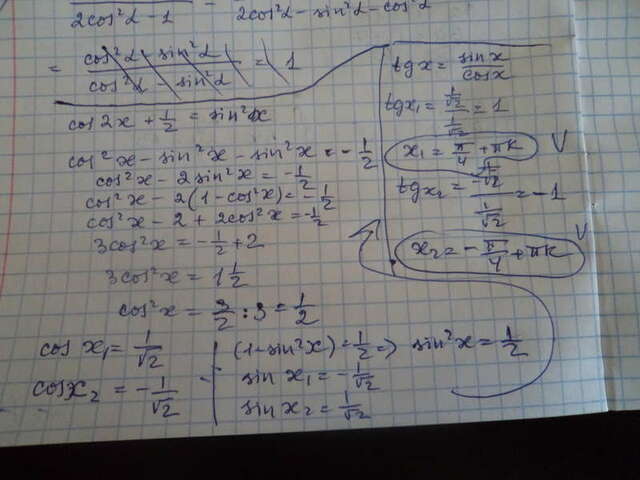 2cos²α - 1   2cos²α - sin²α - cos²α
= cos²α - sin²α / cos²α - sin²α = 1
cos2x + 1/2 = sin²x
cos²x - sin²x - sin²x = -1/2
cos²x - 2sin²x = -1/2
cos²x - 2(1-cos²x) = -1/2
cos²x - 2 + 2cos²x = -1/2
3cos²x = -1/2 + 2
3cos²x = 1 1/2
cos²x = 3/2 : 3 = 1/2
cos x₁ = 1/√2
cos x₂ = -1/√2
(1-sin²x) = 1/2 => sin²x = 1/2
sin x₁ = -1/√2
sin x₂ = 1/√2
tgx = sinx/cosx
tgx₁ = 1/√2 / 1/√2 = 1
x₁ = π/4 + πk V
tgx₂ = -1/√2 / 1/√2 = -1
x₂ = -π/4 + πk V